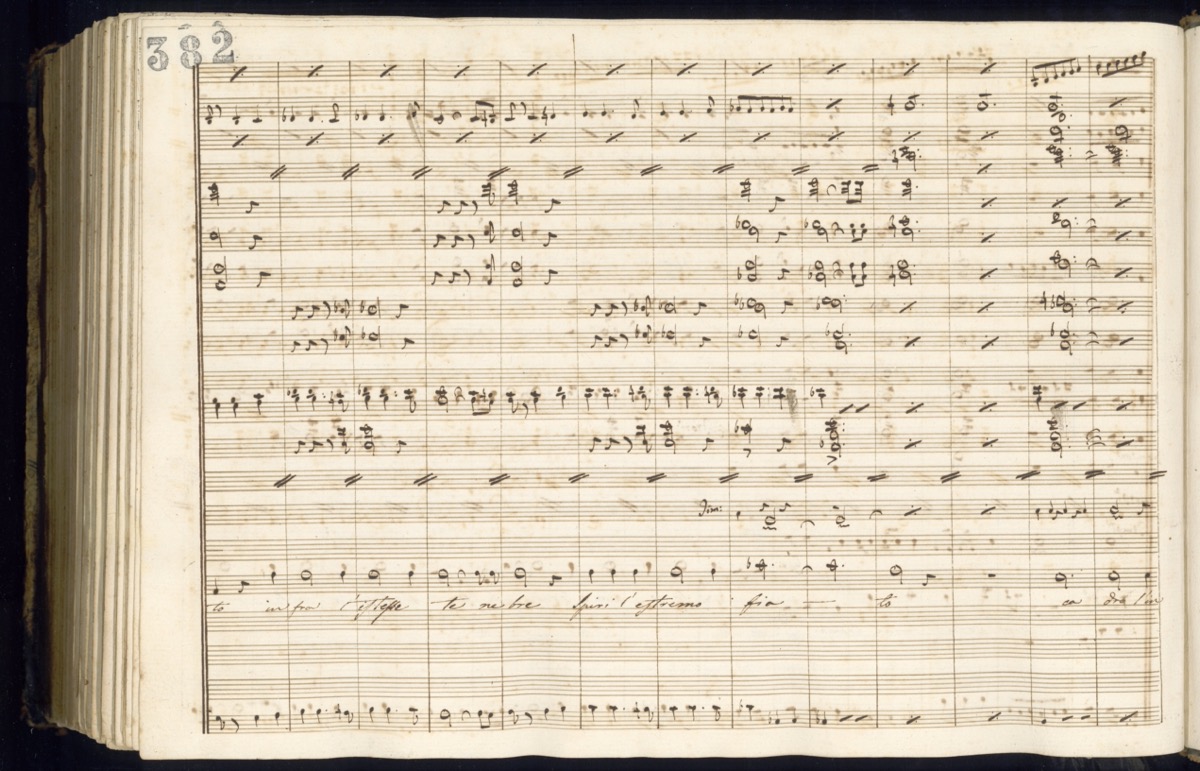 382
Tim:
to in fra l'istesse te ne bre spiri l'estremo fia to ca drà l'in